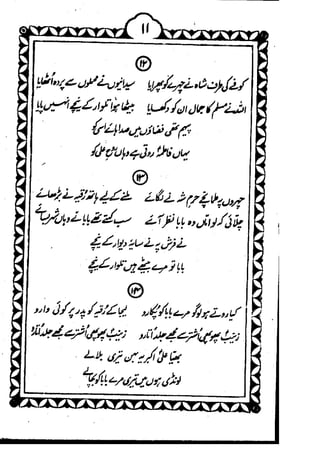 ۱۱
۱۲
کوفے کی طرف شاہ نے چہرے کو پھرایا سیدانیوں نے محملوں سے پردہ اٹھایا
اللہ نے مسلم کا جمال ان کو دکھایا بیٹھا ہوا تلوار کے نیچے انہیں پایا
پیہم تھی فضاؤں میں صدا ہائے
یہاں فاطمہ روتی ہے وہاں
۱۳
چہروں پہ طمانچے حرم شہ نے لگائے ملنے کے لیے ہاتھ رقیہ نے بڑھائے
چلائی کہ لو اماں وہ بابا نظر آئے سب کہتے تھے بابا نے وہاں
نے فرش پہ نے سایۂ دیوار کے نیچے
بابا تو مرے بیٹھے ہیں تلوار کے نیچے
۱۴
کیا روتے ہو لوگو مرے بابا کو پکارو لیجا کے رقیہ کو پدر پر کوئی وارو
زینب پھوپھی اشتر سے مجھے جلد اتارو زینب پھوپھی اشتر سے مجھے جلد اتارو
بھیا علی اکبر یہ بہن تیری بلائے
لونڈی ہوں میں تیری مرے بابا کو بچائے